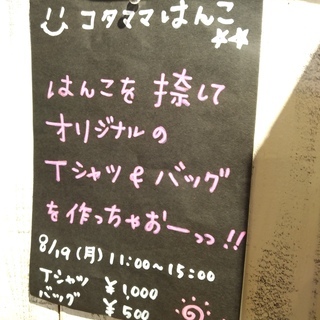 コタママはんこ
はんこを捺して
オリジナルの
Tシャツ&バッグ
を作っちゃおーっっ!!
8/19(月)11:00~15:00
Tシャツ ¥1,000
バッグ ¥500